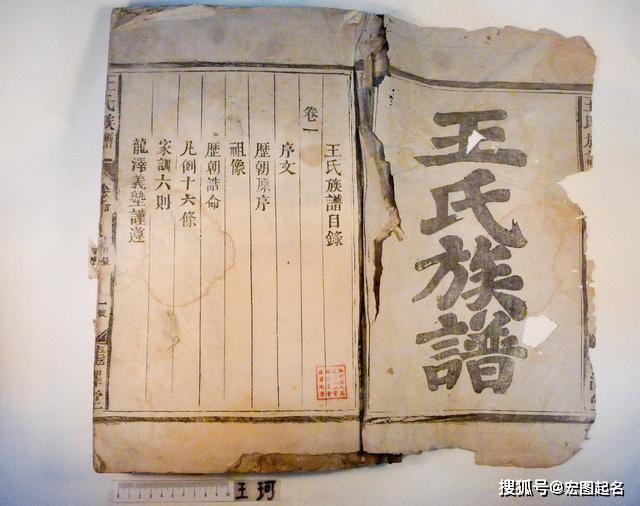 王氏族譜
王氏族譜目錄
卷一
序文
歷朝原序
祖像
歷朝誥命
凡例十六條
家訓六則
龍澤義塾謹遵
王氏族譜
王珂
搜狐号@宏图起名